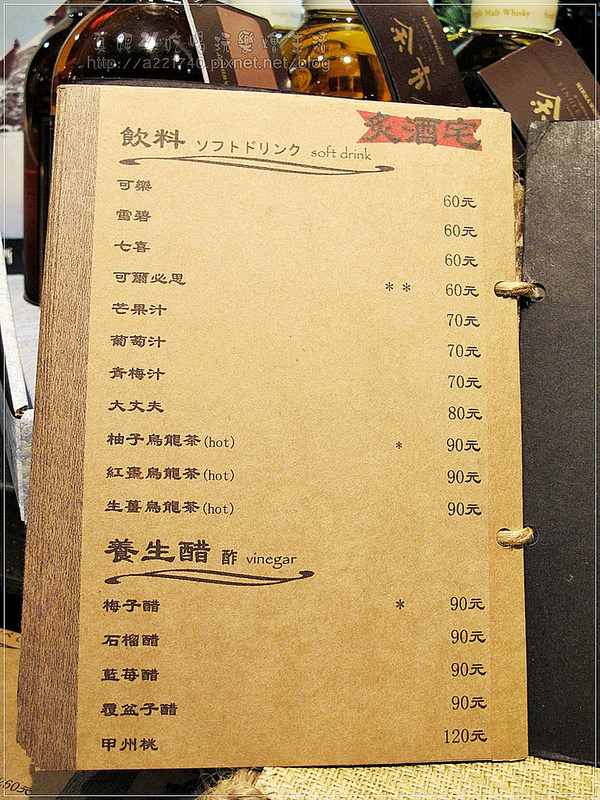 真愰の吃喝玩樂燴生活
http://a221740.pixnet.net/blog
Single Malt Whisky
炙酒宅
飲料 ソフトドリンク soft drink
可樂 60元
雪碧 60元
七喜 60元
可爾必思 ** 60元
芒果汁 70元
葡萄汁 70元
青梅汁 70元
大丈夫 80元
柚子烏龍茶(hot) * 90元
紅棗烏龍茶(hot) 90元
生薑烏龍茶(hot) 90元
養生醋 酢 vinegar
梅子醋 * 90元
石榴醋 90元
藍苺醋 90元
覆盆子醋 90元
甲州桃 120元